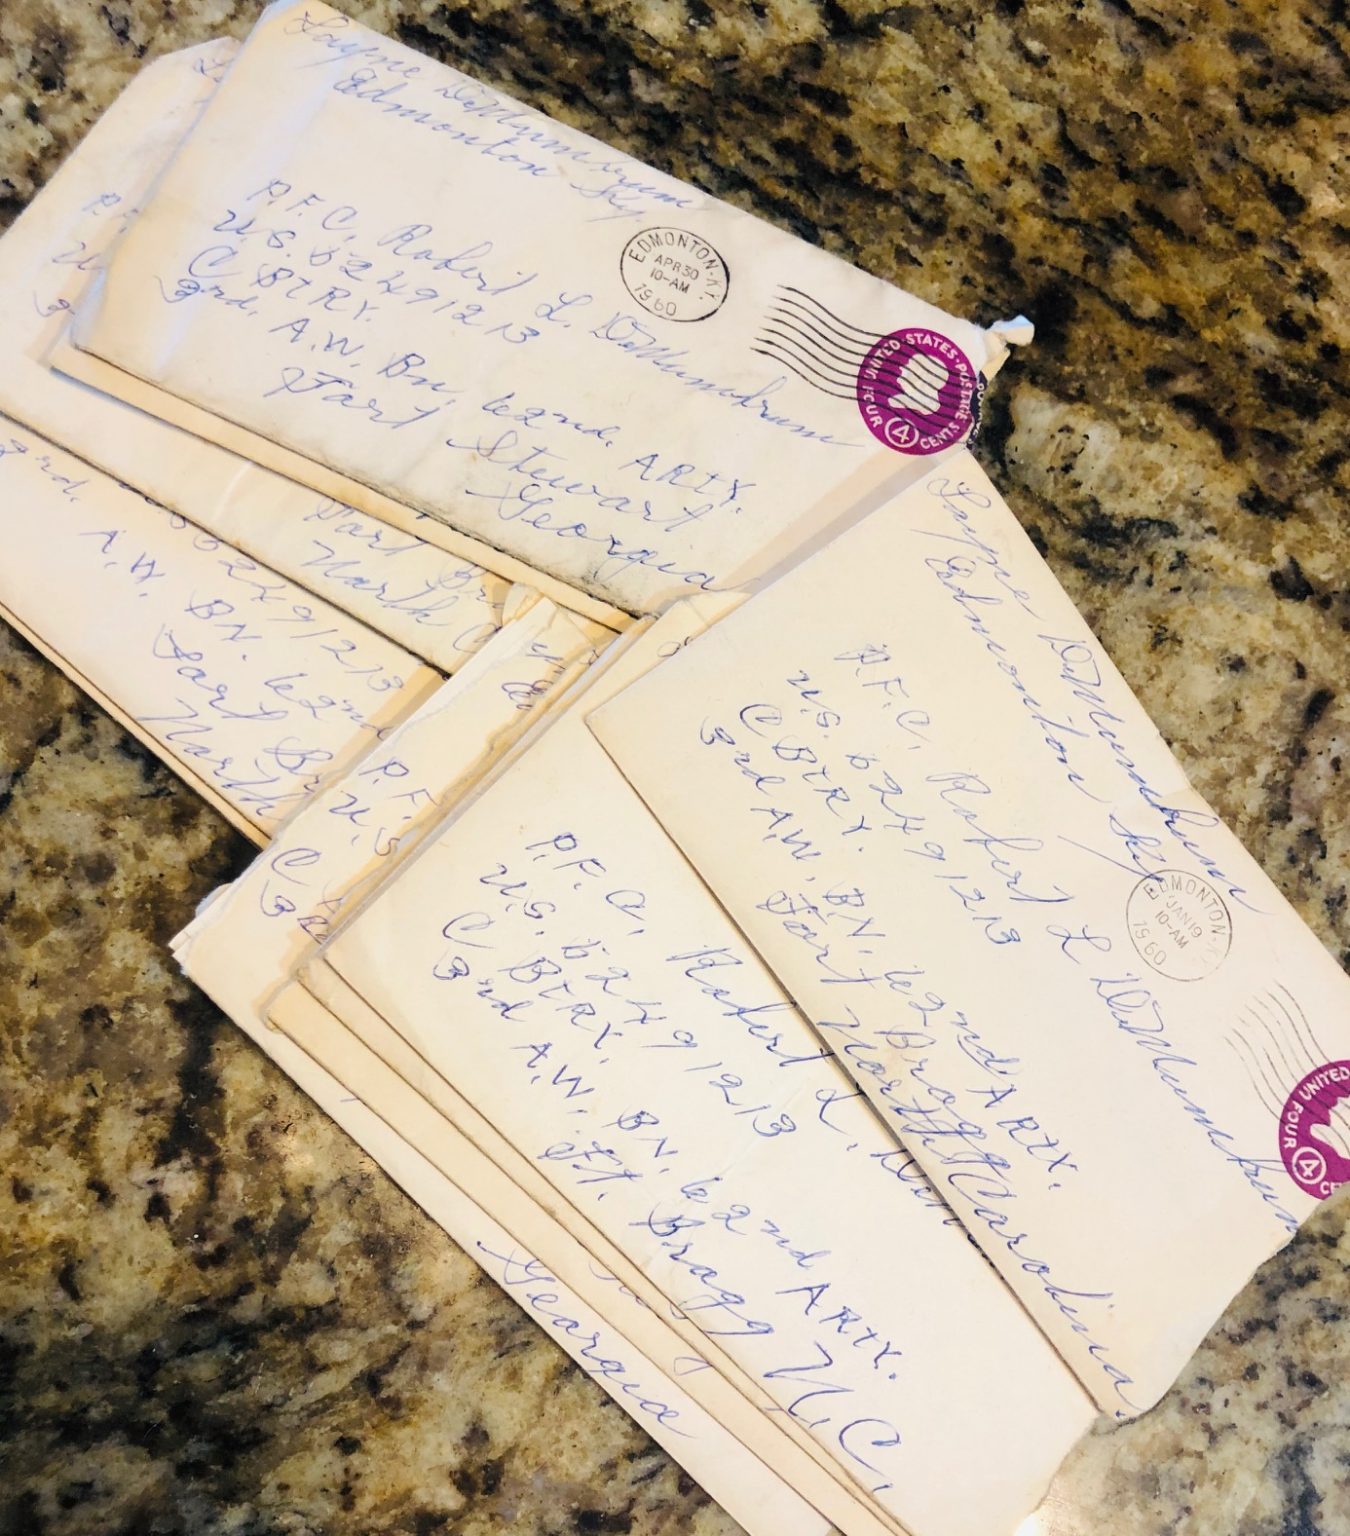 Layne DeMumbrum
Edmonton Ky
EDMONTON-KY.
APR 30
10-AM
1960
UNITED STATES POSTAGE
FOUR 4 CENTS
P.F.C. Robert L. DeMumbrum
U.S. 52491213
C BTRY.
3rd. A.W. Bn. 62nd. ARTY.
Fort Stewart
Georgia
P.
U
3
Fort
North C
3rd. A.W. BN. 62nd
52491213
Fort Br
North
P.F.
U.S
C
3
Layne DeMumbrum
Edmonton Ky
EDMONTON-KY.
JAN 19
10-AM
1960
FOUR UNITED
4 CE
P.F.C. Robert L DeMumbrum
U.S. 52491213
C BTRY.
3rd A.W. BN. 62nd ARTY.
Fort Bragg
North Carolina.
P.F.C. Robert L. DeM
U.S. 52491213
C BTRY.
3rd A.W. BN. 62nd ARTY.
Ft. Bragg N.C.
Georgia